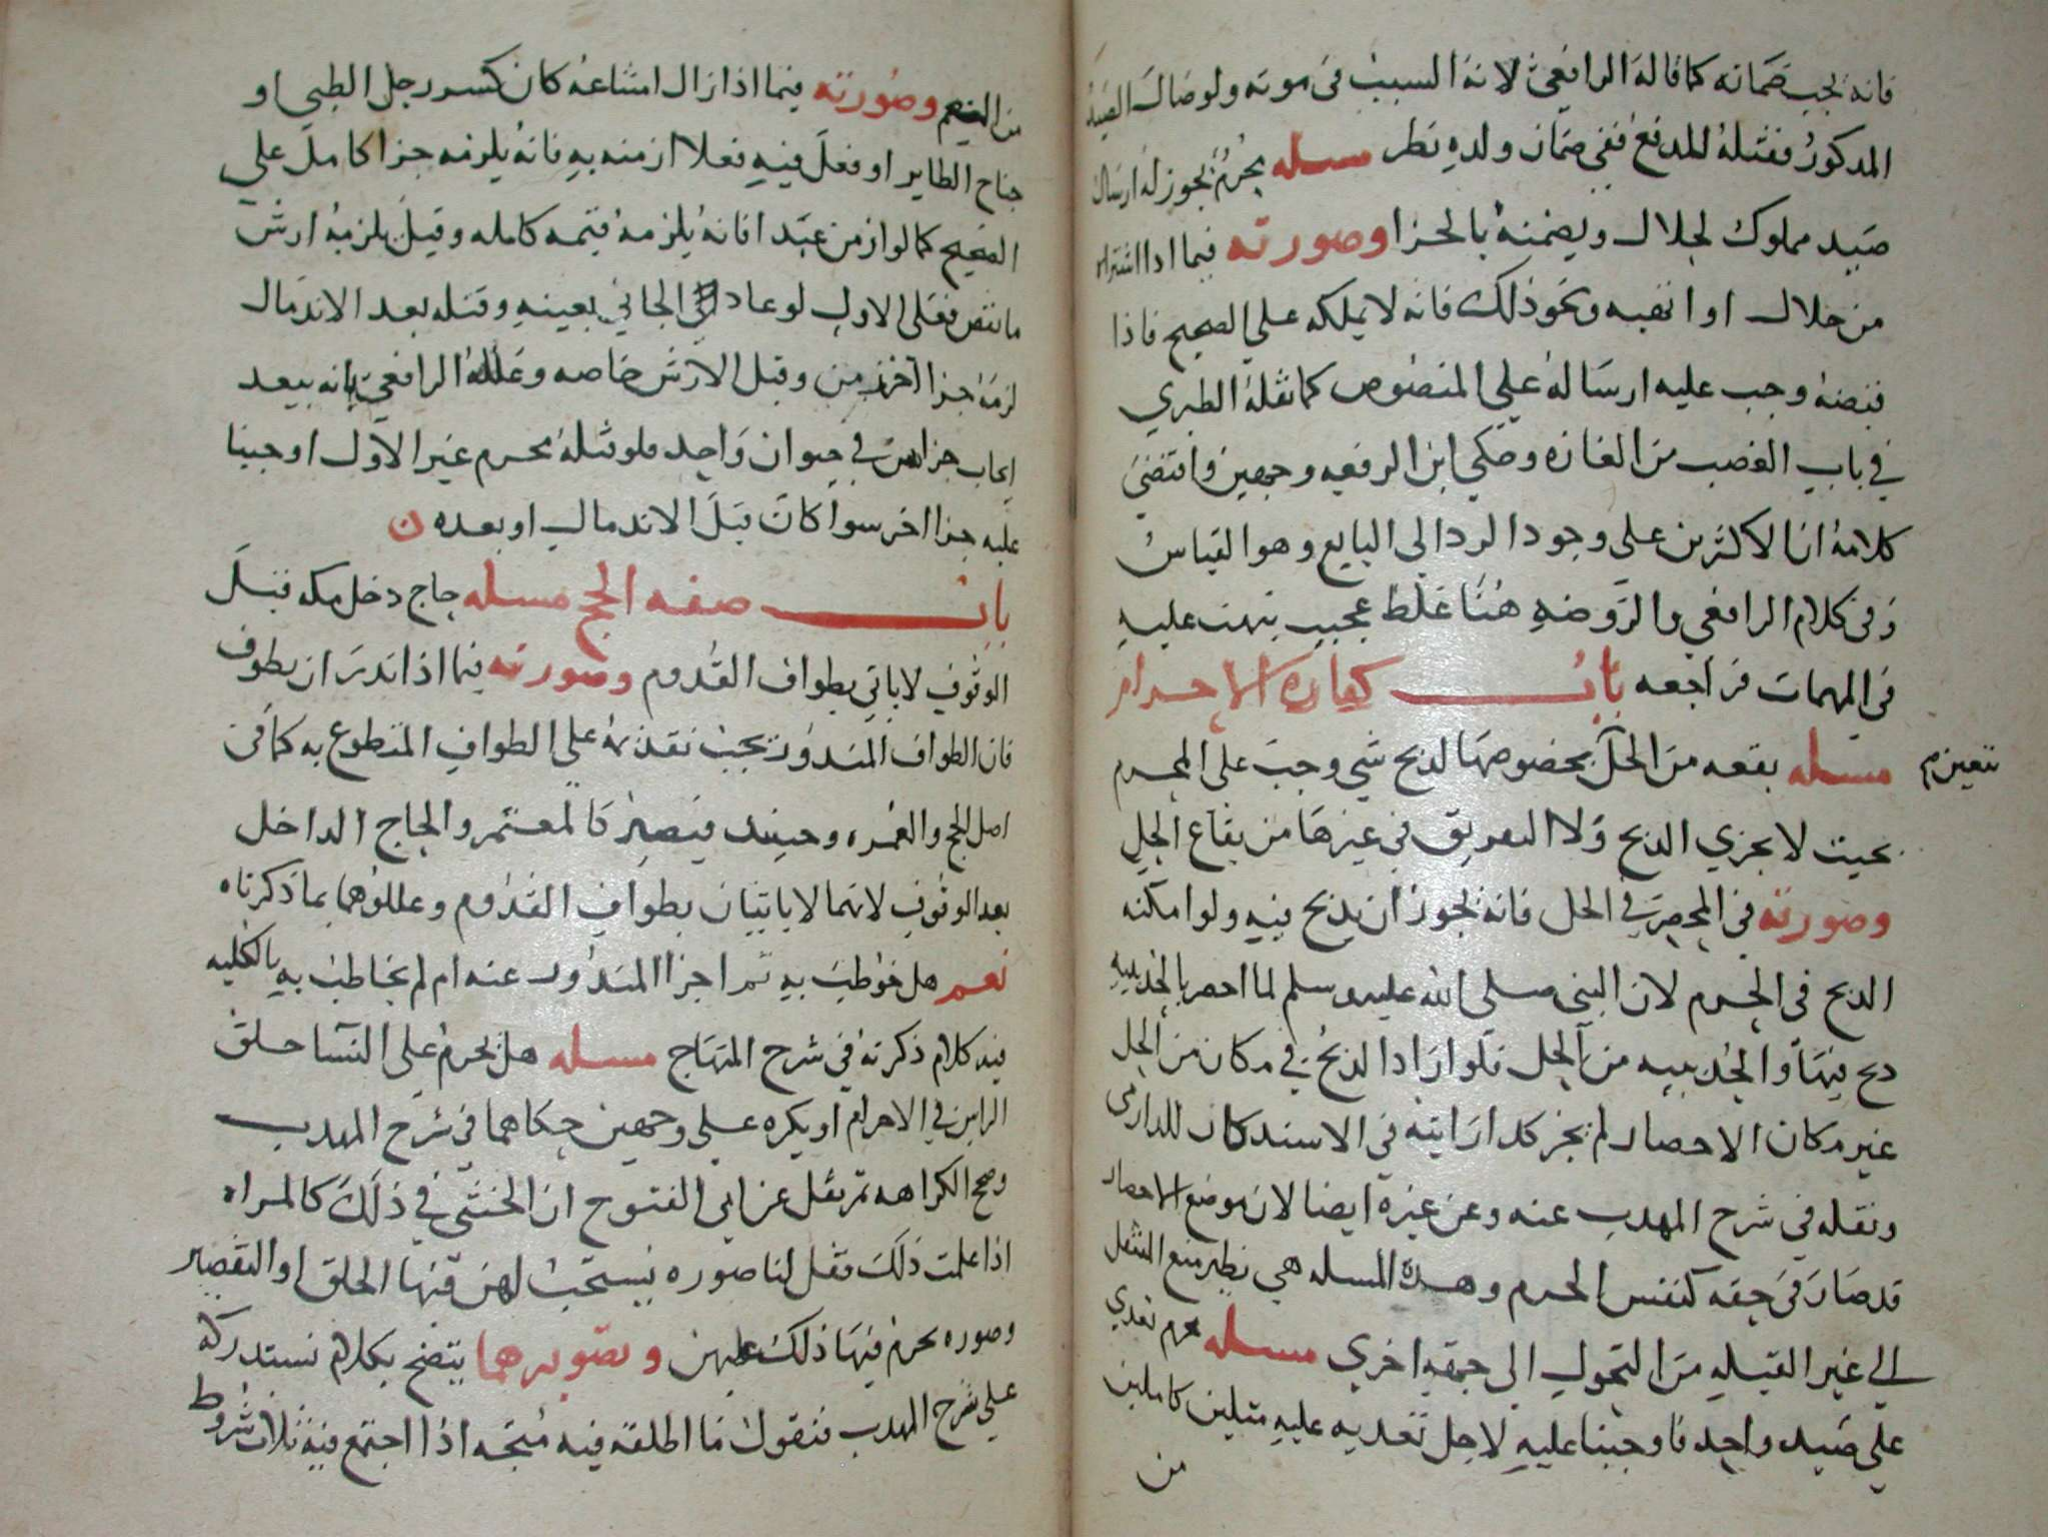 فانه يجب ضمانه كما قاله الرافعي لانه السبب في موته ولو صال الصيد
المدكور فقتله للدفع ففي ضمان ولده نظر مسله محرم يجوز له ارسال
صيد مملوك لحلال ويضمنه بالجزا وصورته فيما اذا اشتراه
من حلال او اتهبه ونحو ذلك فانه لا يملكه على الصحيح فاذا
قبضه وجب عليه ارساله على المنصوص كما نقله الطبري
في باب الغصب من العده وحكي ابن الرفعه وجهين واقتضي
كلامه ان الاكثرين على وجود الرد الى البايع وهو القياس
وفي كلام الرافعي والروضه هنا غلط عجيب نبهت عليه
في المهمات فراجعه باب كفاره الاحرام
مسله بقعه من الحل بخصوصها لدبح شي وجب على المحرم
تتعين
بحيث لا يجزي الدبح ولا التفريق في غيرها من بقاع الحل
وصورته في المحصر في الحل فانه يجوز ان يدبح فيه ولو امكنه
الدبح في الحرم لان النبي صلى الله عليه وسلم لما احصر بالحديبيه
دبح فيها والحديبيه من الحل فلو اراد الدبح في مكان من الحل
غير مكان الاحصار لم يجز كدا رايته في الاستدكار للدارمي
ونقله في شرح المهدب عنه وعن غيره ايضا لان موضع الاحصار
قد صار في حقه كنفس الحرم وهده المسله هي نظير منع المتنفل
الى غير القبله من التحول الى جهه اخري مسله محرم تعدي
على صيد واحد فاوجبنا عليه لاجل تعديه عليه مثلين كاملين
من
من النعم وصورته فيما اذا زال امتناعه كان كسر رجل الظبي او
جناح الطاير او فعل فيه فعلا ازمنه به فانه يلزمه جزا كامل على
الصحيح كما لو ازمن عبدا فانه يلزمه قيمه كامله وقيل يلزمه ارش
ما نقص فعلى الاول لو عاد الجاني بعينه وقتله بعد الاندمال
لزمه جزا اخر زمن وقبل الارش خاصه وعلله الرافعي بانه يبعد
ايجاب جزاين في حيوان واحد فلو قتله محرم غير الاول اوجبنا
عليه جزا اخر سوا كان قبل الاندمال او بعده ن
باب صفه الحج مسله حاج دخل مكه قبل
الوقوف لا ياتي بطواف القدوم وصورته فيما اذا ندر ان يطوف
فان الطواف المندور يجب تقديمه على الطواف المتطوع به كما في
اصل الحج والعمره وحينيد فيصير كالمعتمر والحاج الداخل
بعد الوقوف لانهما لا ياتيان بطواف القدوم وعللوهما بما ذكرناه
نعم هل خوطب به ثم اجزا المندور عنه ام لم يخاطب به بالكليه
فيه كلام ذكرته في شرح المنهاج مسله هل يحرم على النسا حلق
الراس في الاحرام او يكره على وجهين حكاهما في شرح المهدب
وصح الكراهه ثم نقل عن ابي الفتوح ان الخنثي في ذلك كالمراه
اذا علمت ذلك فقل لنا صوره يستحب لهن فيها الحلق او التقصير
وصوره يحرم فيها ذلك عليهن وتصويرهما يتضح بكلام نستدركه
على شرح المهدب فنقول ما اطلقه فيه متجه اذا اجتمع فيه ثلاث شروط